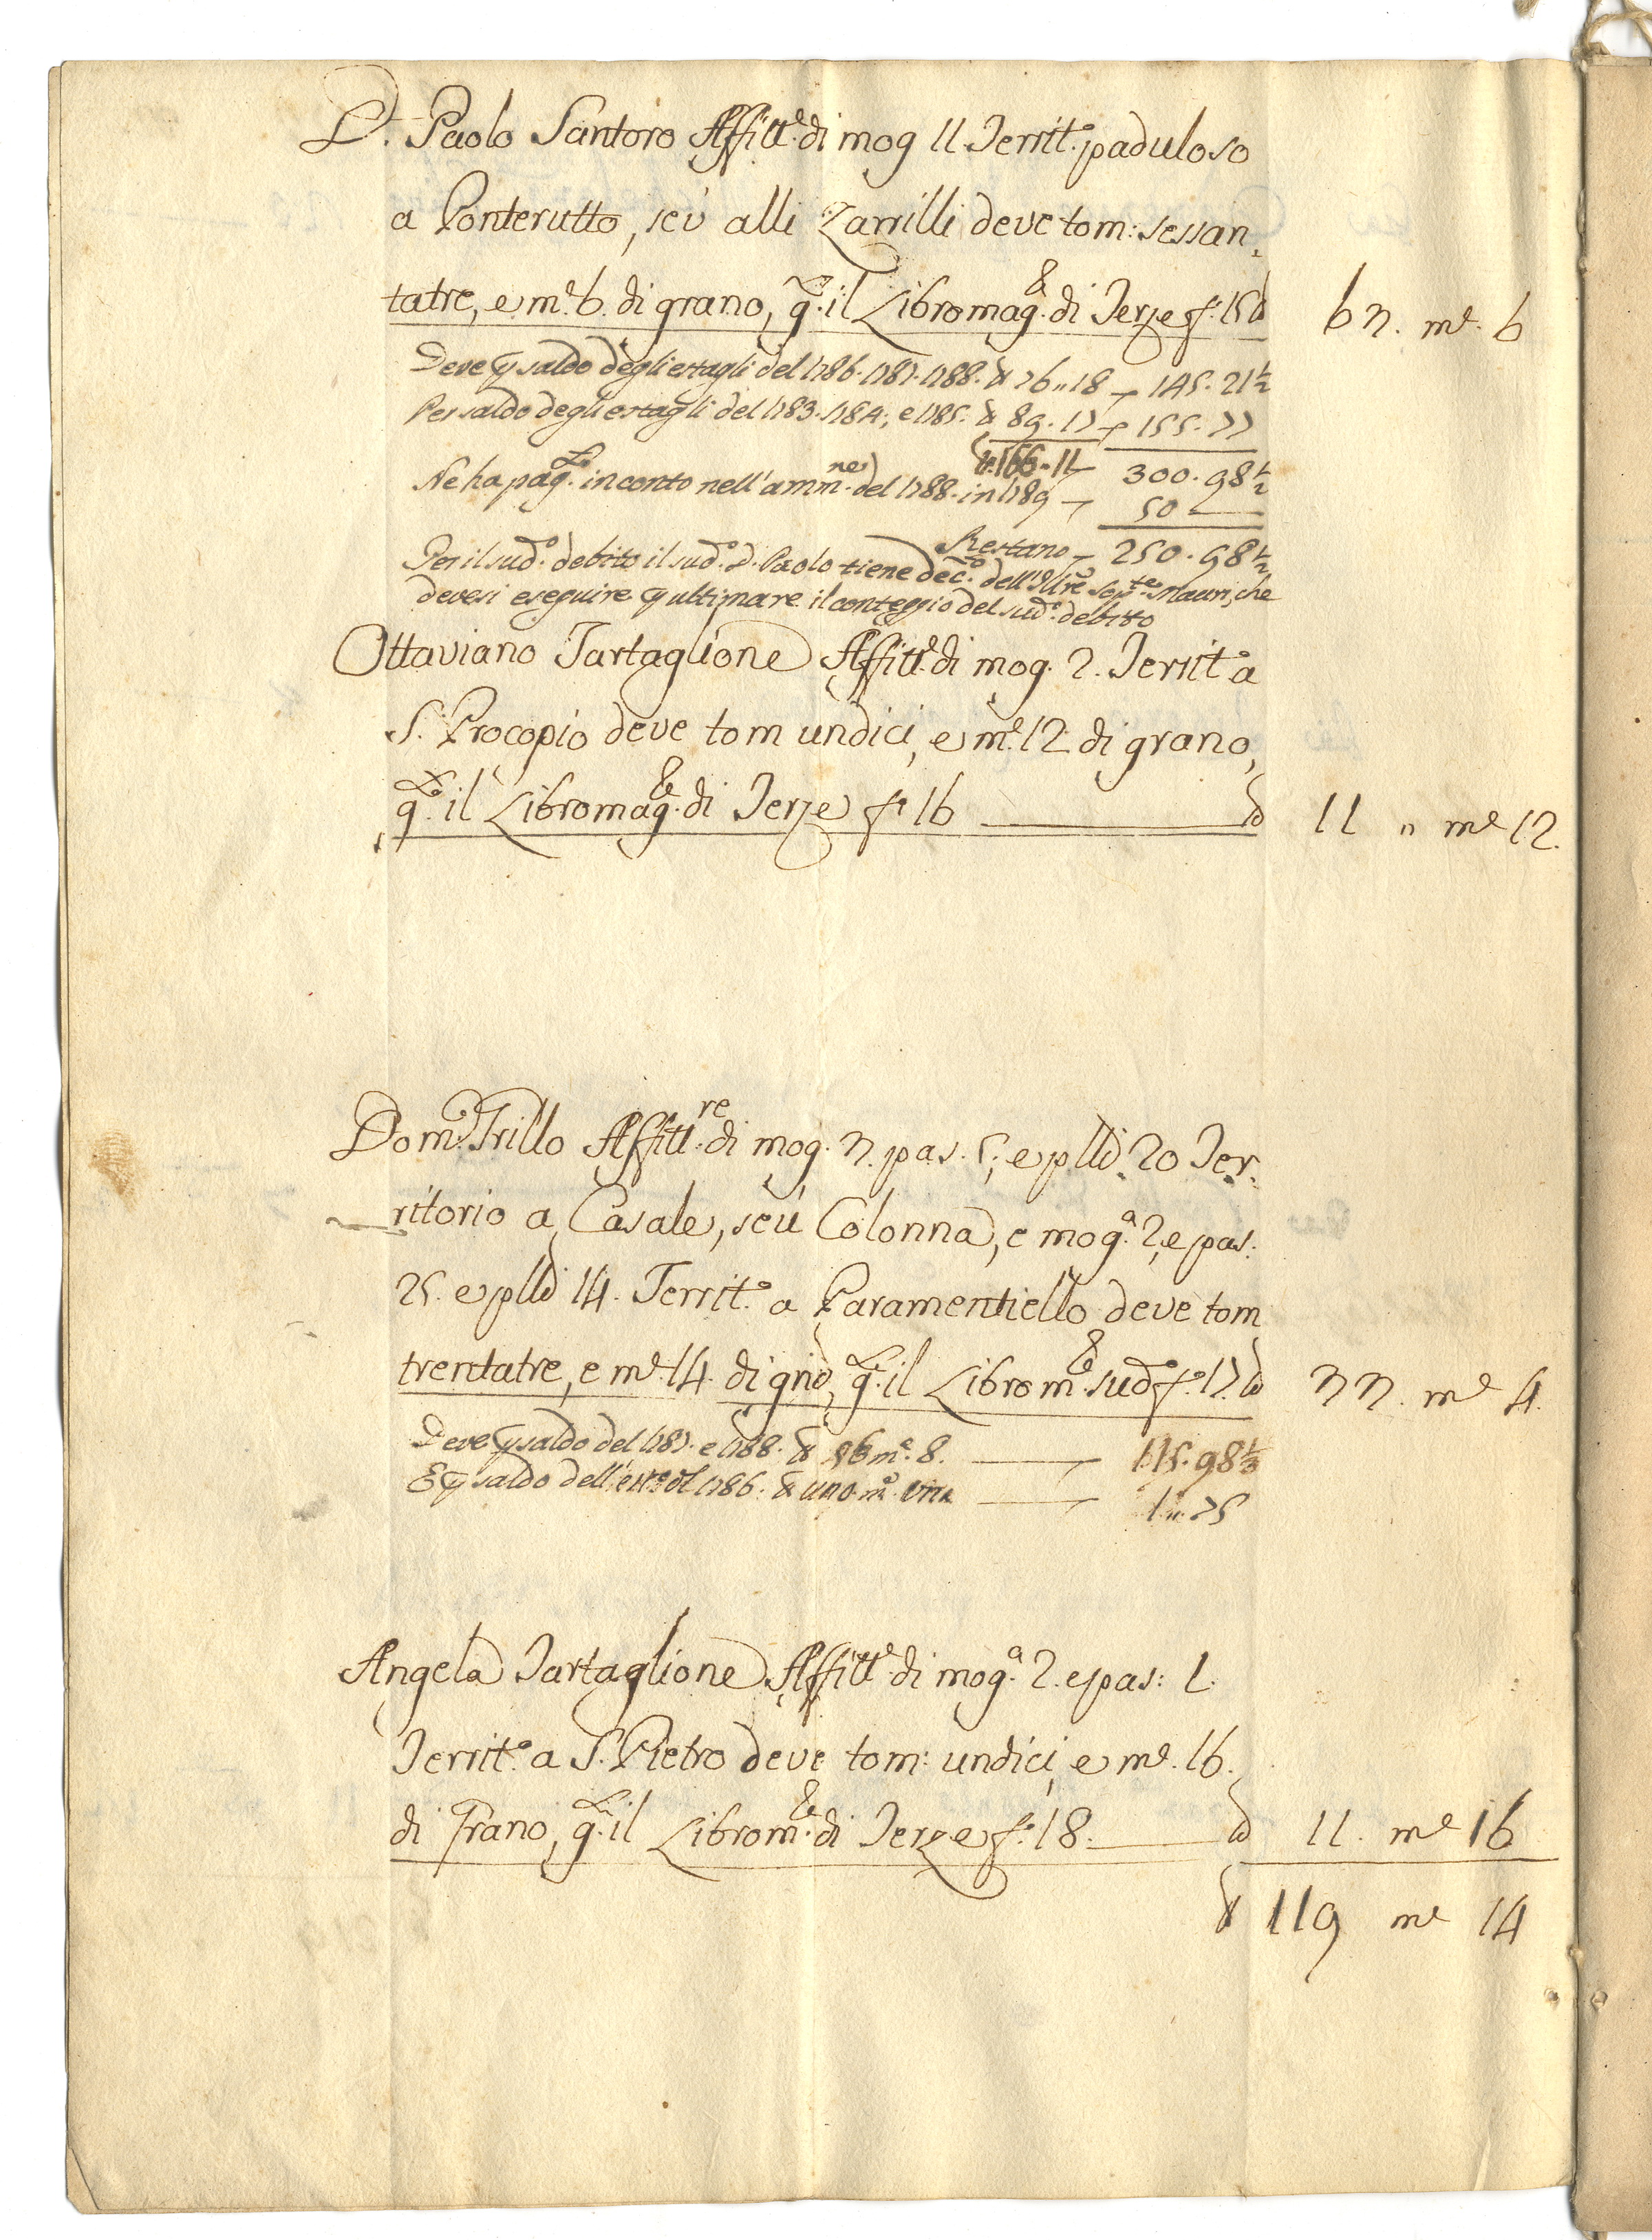 D. Paolo Santoro Affitt.e di mog 11 Territ.o paduloso
a Ponterutto, seù alli Zarrilli deve tom: sessan-
tatre, e m.e 6. di grano, q.l il Libro mag.e di Terze f.o 15 63. m.e 6
Deve p saldo degli estagli del 1786. 1787. 1788. 76 " 18 — 145. 21½
Per saldo degli estagli del 1783. 1784; e 1785. 89. 17 — 155. 77
166 " 11 — 300. 98½
Ne ha pag.to in conto nell'amm.ne del 1788. in 1789 — 50
Restano — 250. 98½
Per il sud.o debito il sud.o D. Paolo tiene dec.o dell'Ill.re Mauri, che
devesi eseguire p ultimare il conteggio del sud.o debito
Ottaviano Tartaglione Affitt.e di mog. 2. Territ.o a
S. Procopio deve tom undici, e m.e 12 di grano,
q.l il Libro mag.e di Terze f.o 16 11 " m.e 12.
Dom.co Trillo Affitt.re di mog. 3. pas. 5; e plli 20 Ter-
ritorio a Casale, seù Colonna, e mog.a 2, e pas.
25. e plli 14. Territ.o a Paramentiello deve tom
trentatre, e m.e 14. di gno, q.l il Libro m.e sud.o f.o 17. 33. m.e 4.
Deve p saldo del 1787. e 1788. m.e 8. — 98⅓
E p saldo dell'est.o del 1786. uno m.e una — 1 " 75
Angela Tartaglione Affitt.e di mog.a 2. e pas: 1.
Territ.o a S. Pietro deve tom: undici, e m.e 16.
di Grano, q.l il Libro m.e di Terze f.o 18. 11. m.e 16
119 m.e 14